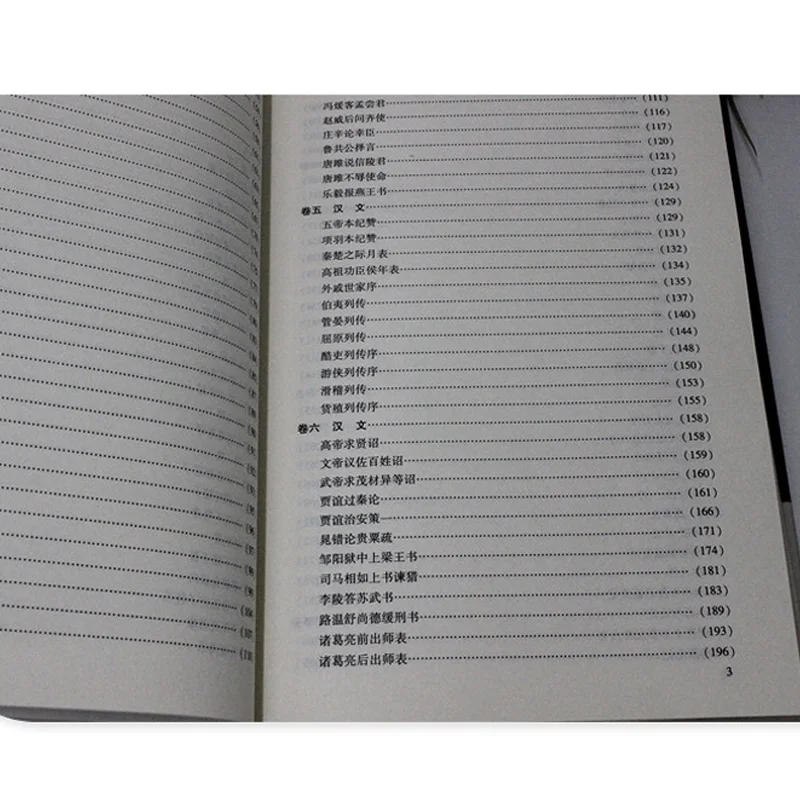 冯煖客孟尝君……(111)
赵威后问齐使……(116)
庄辛论幸臣……(117)
鲁共公择言……(120)
唐雎说信陵君……(121)
唐雎不辱使命……(122)
乐毅报燕王书……(124)
卷五 汉文……(129)
五帝本纪赞……(129)
项羽本纪赞……(131)
秦楚之际月表……(132)
高祖功臣侯年表……(134)
外戚世家序……(135)
伯夷列传……(137)
管晏列传……(140)
屈原列传……(144)
酷吏列传序……(148)
游侠列传序……(150)
滑稽列传……(153)
货殖列传序……(155)
卷六 汉文……(158)
高帝求贤诏……(158)
文帝议佐百姓诏……(159)
武帝求茂材异等诏……(160)
贾谊过秦论……(161)
贾谊治安策一……(166)
晁错论贵粟疏……(171)
邹阳狱中上梁王书……(174)
司马相如上书谏猎……(181)
李陵答苏武书……(183)
路温舒尚德缓刑书……(189)
诸葛亮前出师表……(193)
诸葛亮后出师表……(196)
3